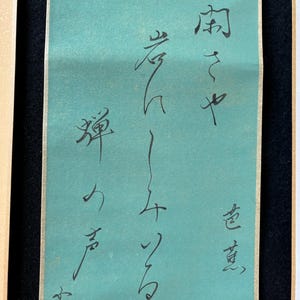 閑さや
岩にしみいる
蝉の声
芭蕉